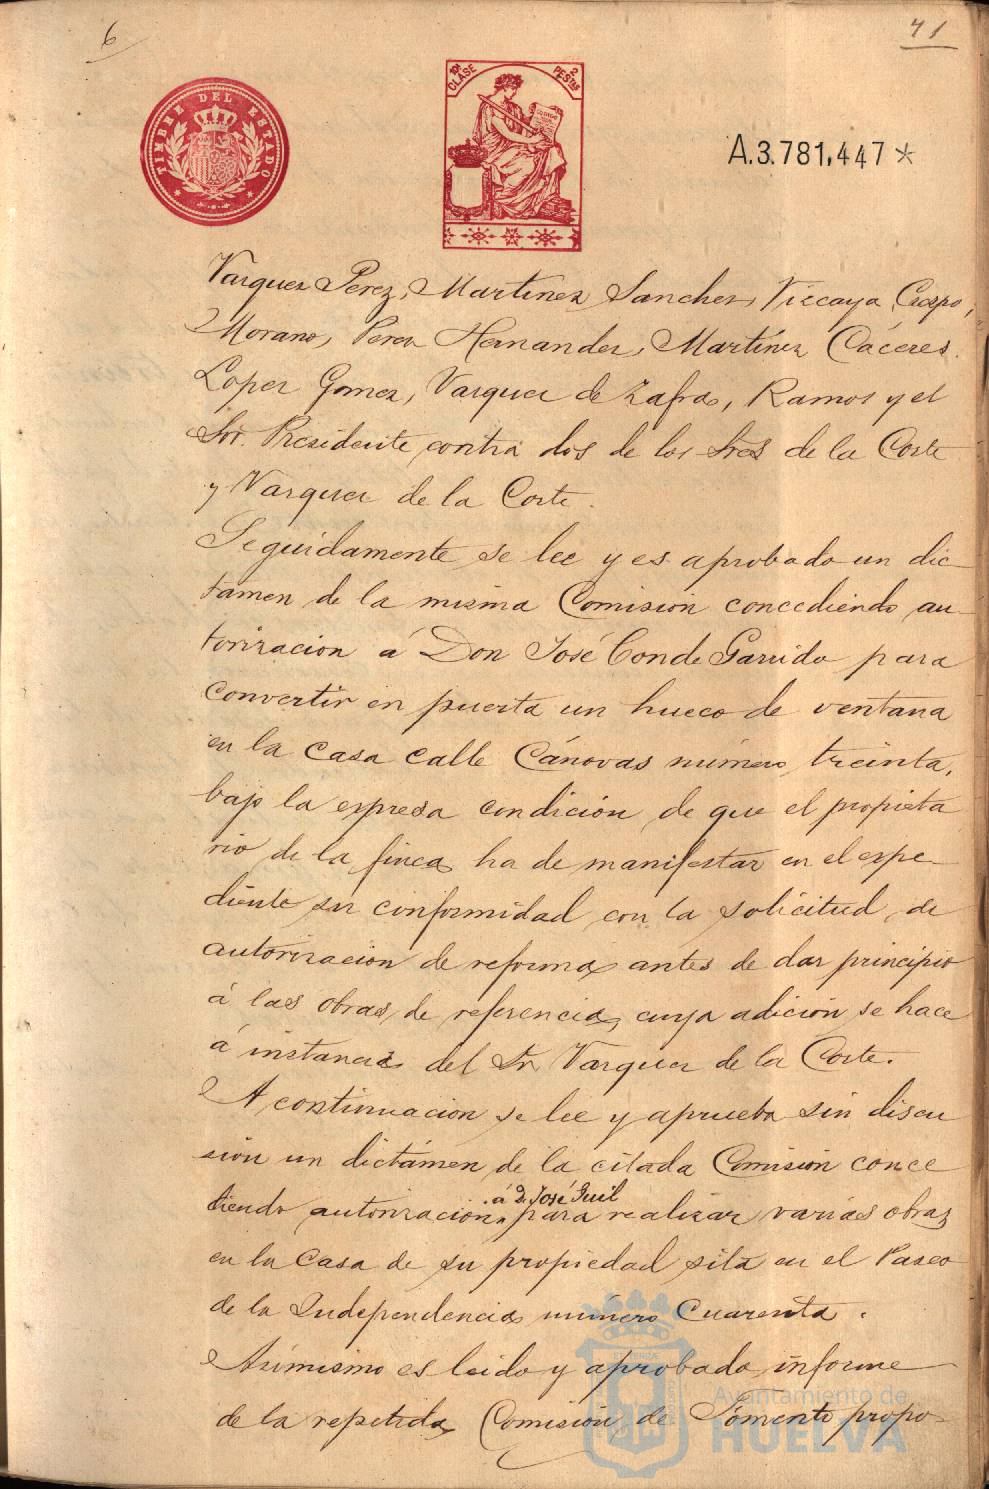 6
41
TIMBRE DEL ESTADO
10ª CLASE
2 PESTAS
A.3.781,447*
Vazquez Perez, Martinez Sanchez, Vizcaya, Crespo,
Morano, Perez Hernandez, Martínez Cáceres.
Lopez Gomez, Vazquez de Zafra, Ramos y el
Sr. Presidente contra dos de los Sres de la Corte
y Vazquez de la Corte.
Seguidamente se lee y es aprobado un dic-
tamen de la misma Comisión concediendo au-
torizacion á Don José Conde Garrido para
convertir en puerta un hueco de ventana
en la casa calle Cánovas número treinta,
bajo la espresa condición de que el propieta
rio de la finca ha de manifestar en el espe-
diente su conformidad con la solicitud de
autorizacion de reforma antes de dar principio
á las obras de referencia, cuya adición se hace
á instancia del Sr Vazquez de la Corte.
A continuacion se lee y aprueba sin discu
sión un dictámen de la citada Comisión conce
diendo autorizacion á D. José Guil para realizar varias obras
en la casa de su propiedad sita en el Paseo
de la Independencia número cuarenta.
Asimismo es leido y aprobado informe
de la repetida Comisión de Fomento propo-
Ayuntamiento de
HUELVA